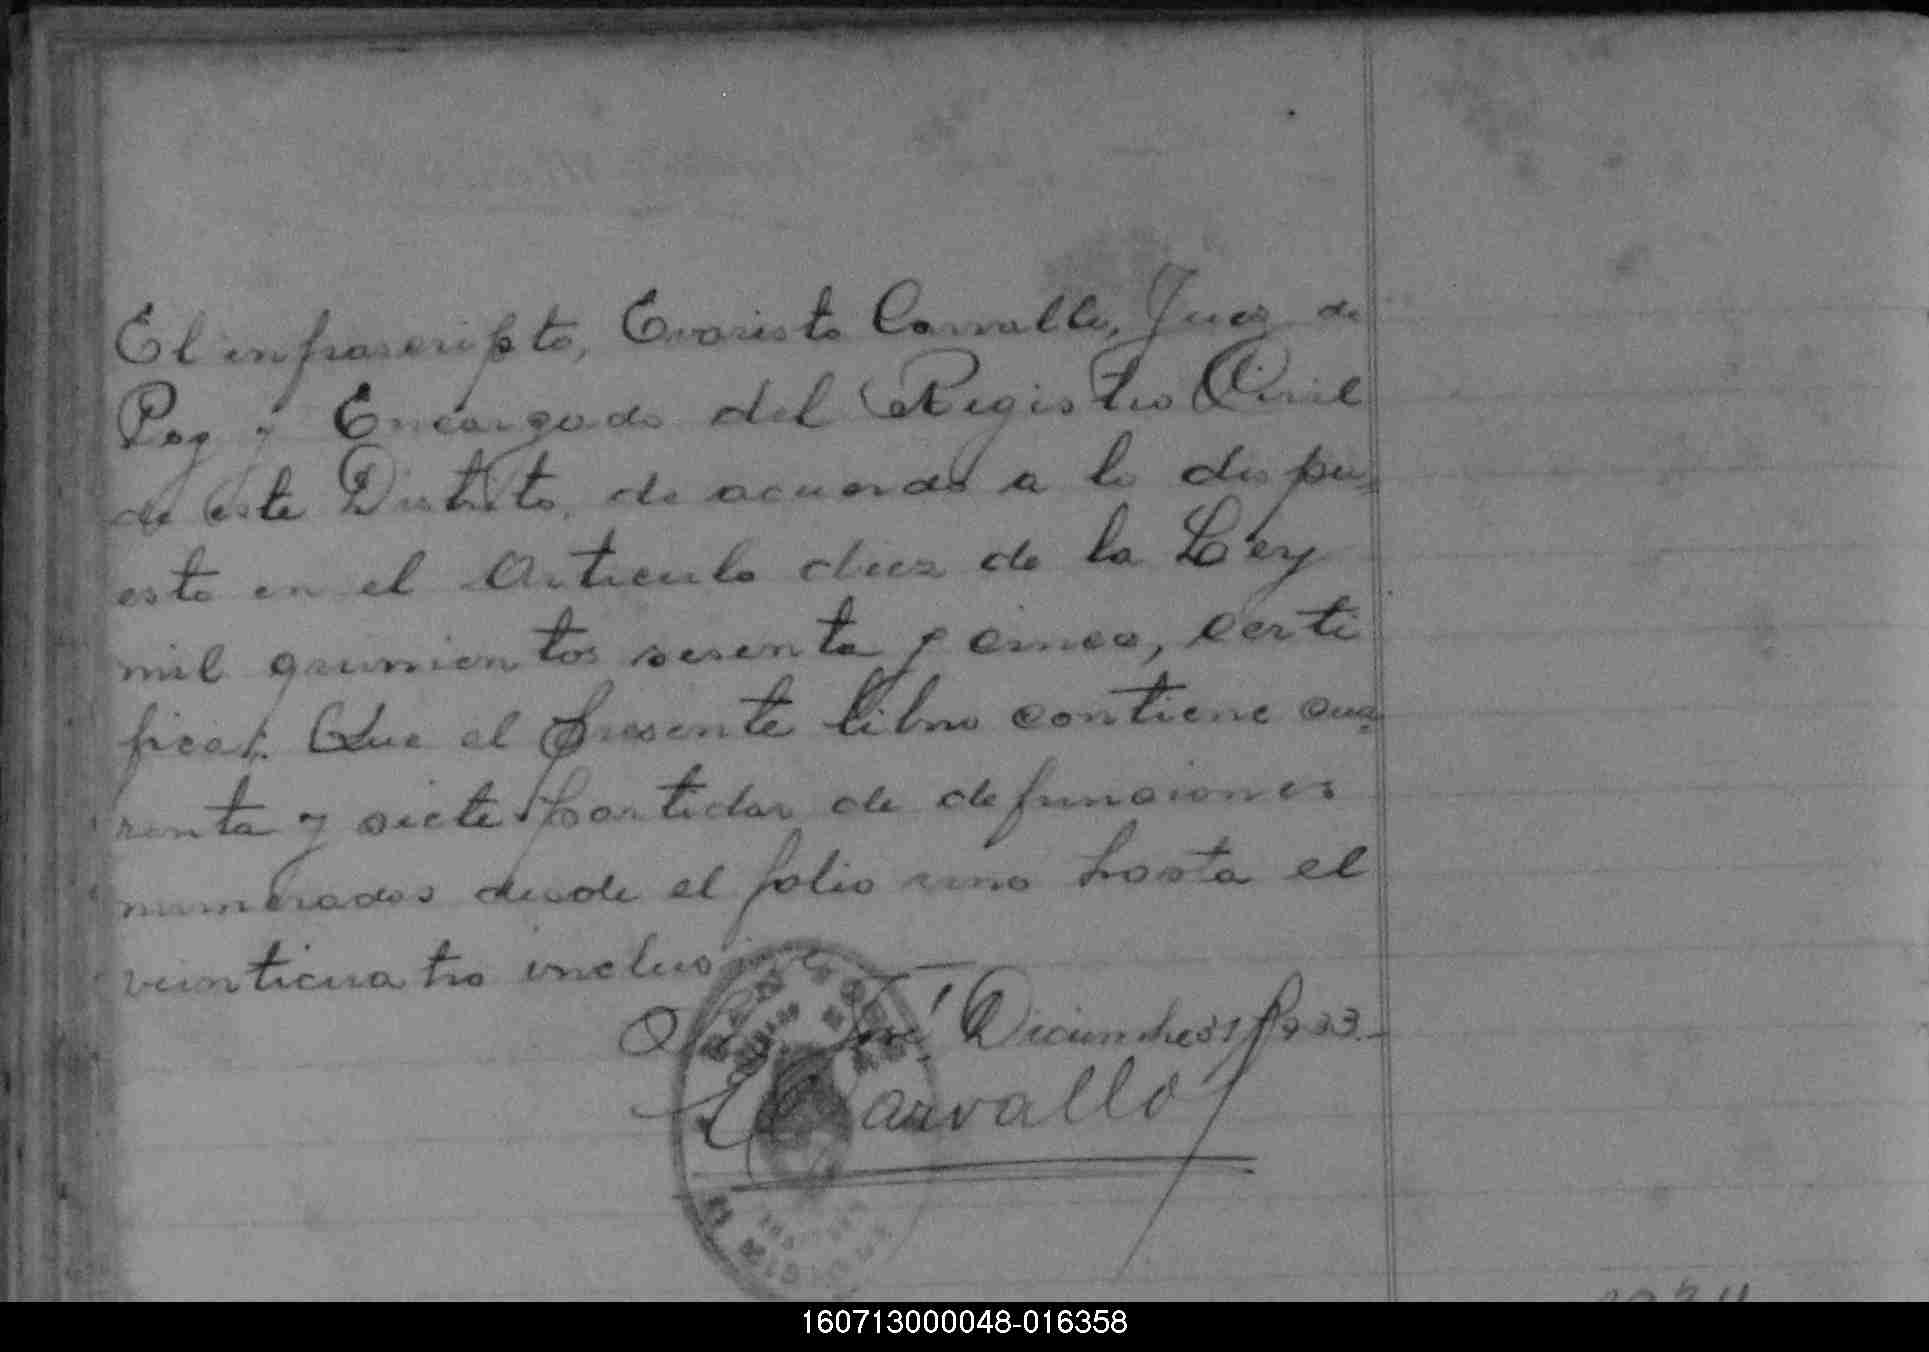 El infrascripto, Evaristo Carvallo, Juez de
Paz y Encargado del Registro Civil
de este Distrito, de acuerdo a lo dispu
esto en el Articulo diez de la Ley
mil quinientos sesenta y cinco, certi
fica: Que el presente libro contiene cua
renta y siete partidas de defunciones
numerados desde el folio uno hasta el
veinticuatro inclus
José Diciembre 31/933.-
Carvallo
160713000048-016358